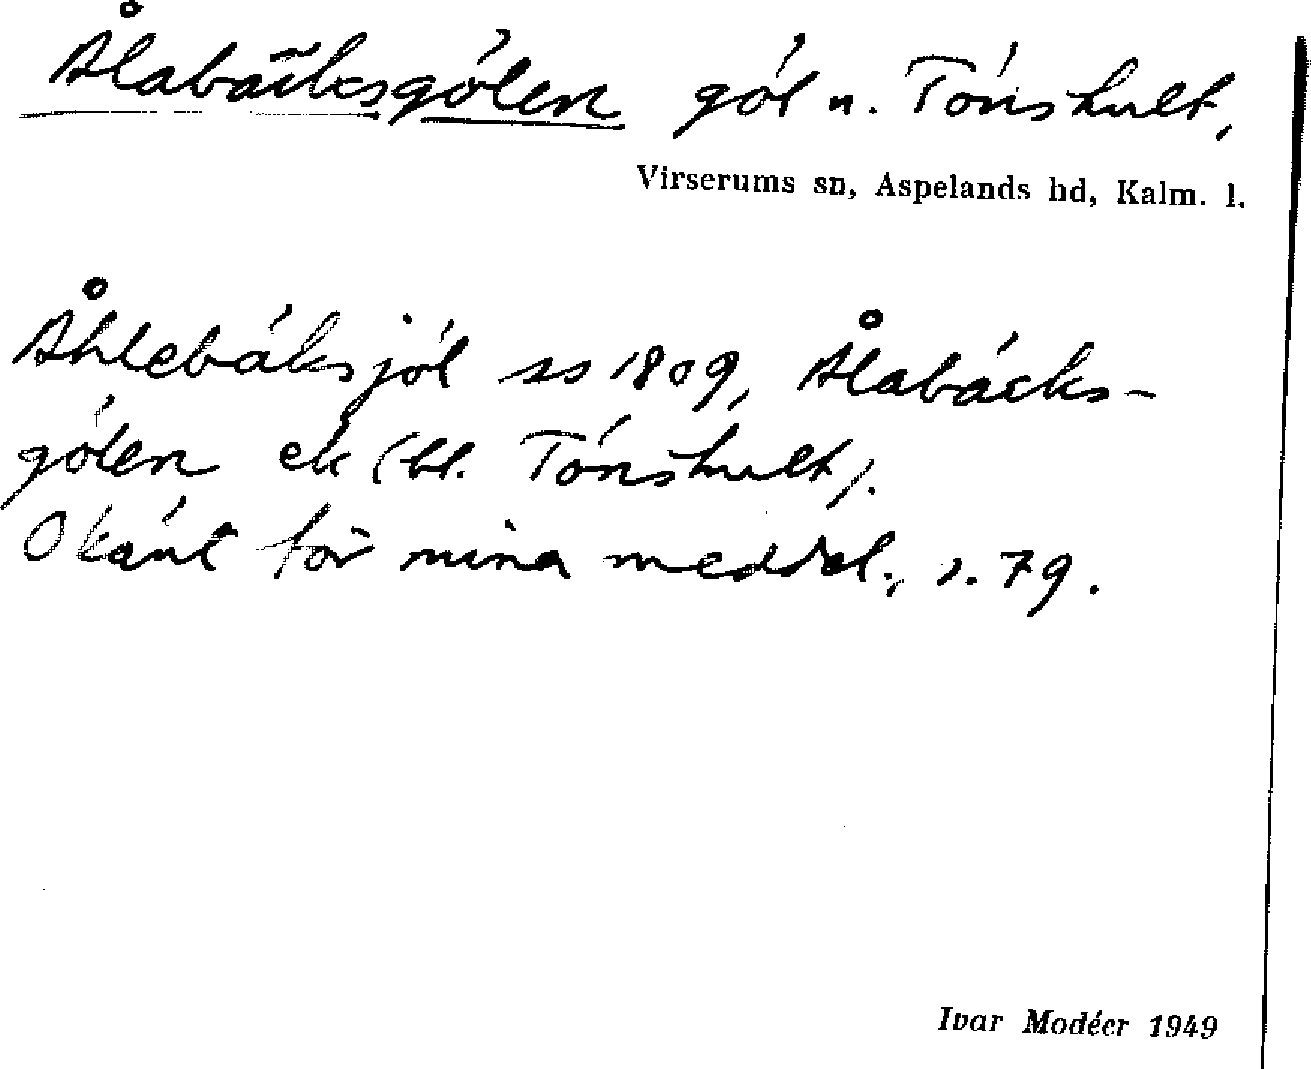 Ålabäcksgölen göl n. Tönshult,
Virserums sn, Aspelands hd, Kalm. l.
Åhlebäksjöl ss 1809, Ålabäcks-
gölen ek (bl. Tönshult).
Okänt för mina meddel., s. 79.
Ivar Modéer 1949